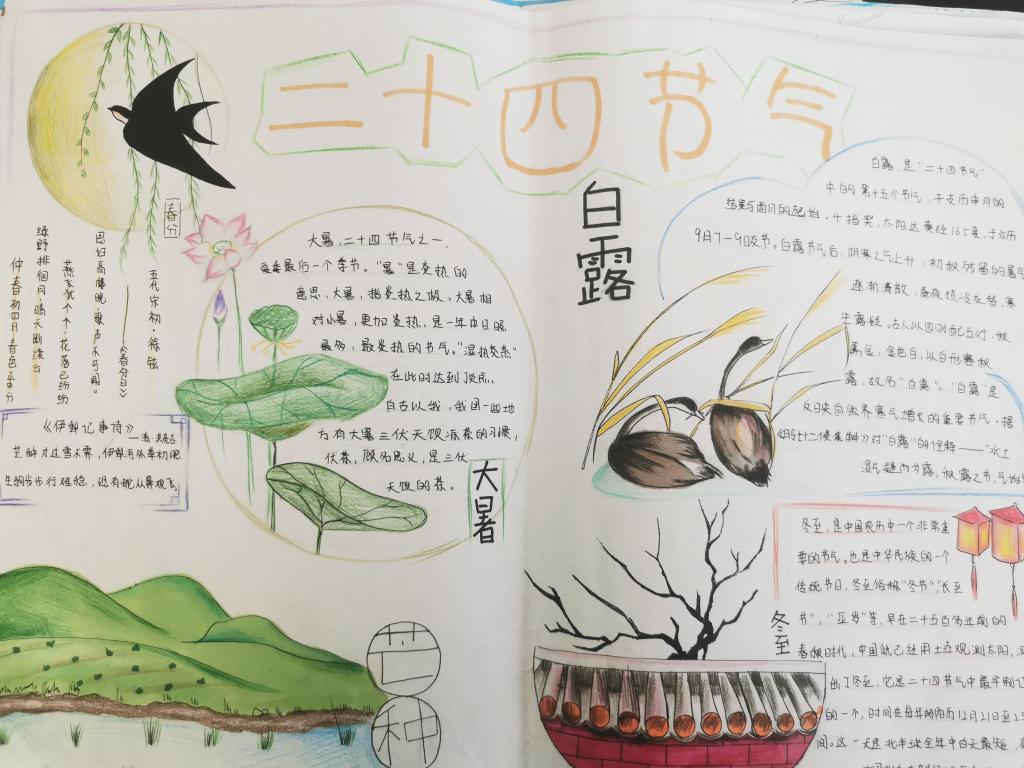 二十四节气
春分
五代宋初·徐铉
《春分日》
仲春初四日,春色正中分
绿野徘徊月,晴天断续云
燕飞犹个个,花落已纷纷
思妇高楼晚,歌声不可闻。
《伊犁记事诗》
——清·洪亮吉
芒种才过雪不霁,伊犁河外草初肥
生驹步步行难稳,恐有蛇从鼻观飞
大暑,二十四节气之一,
最后一个季节。"暑"是炎热的
意思,大暑,指炎热之极,大暑相
对小暑,更加炎热,是一年中日照
最多,最炎热的节气。"湿热交蒸"
在此时达到顶点。
自古以我,我国一些地
方有大暑三伏天饮凉茶的习惯,
伏茶,顾名思义,是三伏
天饮的茶。
大暑
芒种
白露
白露,是"二十四节气"
中的第十五个节气,干支历申月的
结束与酉月的起始,太阳达黄经165度,于公历
9月7-9日交节。白露节气后,阴寒之气上升,初秋残留的暑气
逐渐消散,昼夜热冷交替,寒
生露凝。古人以四时配五行,秋
属金,金色白,以白形容秋
露,故名"白露"。"白露"是
反映自然界寒气增长的重要节气。据
《月令七十二候集解》对"白露"的诠释——"水土
湿气凝而为露,秋
冬至
冬至,是中国农历中一个非常重
要的节气,也是中华民族的一个
传统节日,冬至俗称"冬节","长至
节","亚岁"等,早在二千五百多年前的
春秋时代,中国就已经用土圭观测太阳,
出了冬至,它是二十四节气中最早制订
的一个,时间在每年的阳历12月21日至23
间。这一天是北半球全年中白天最短,